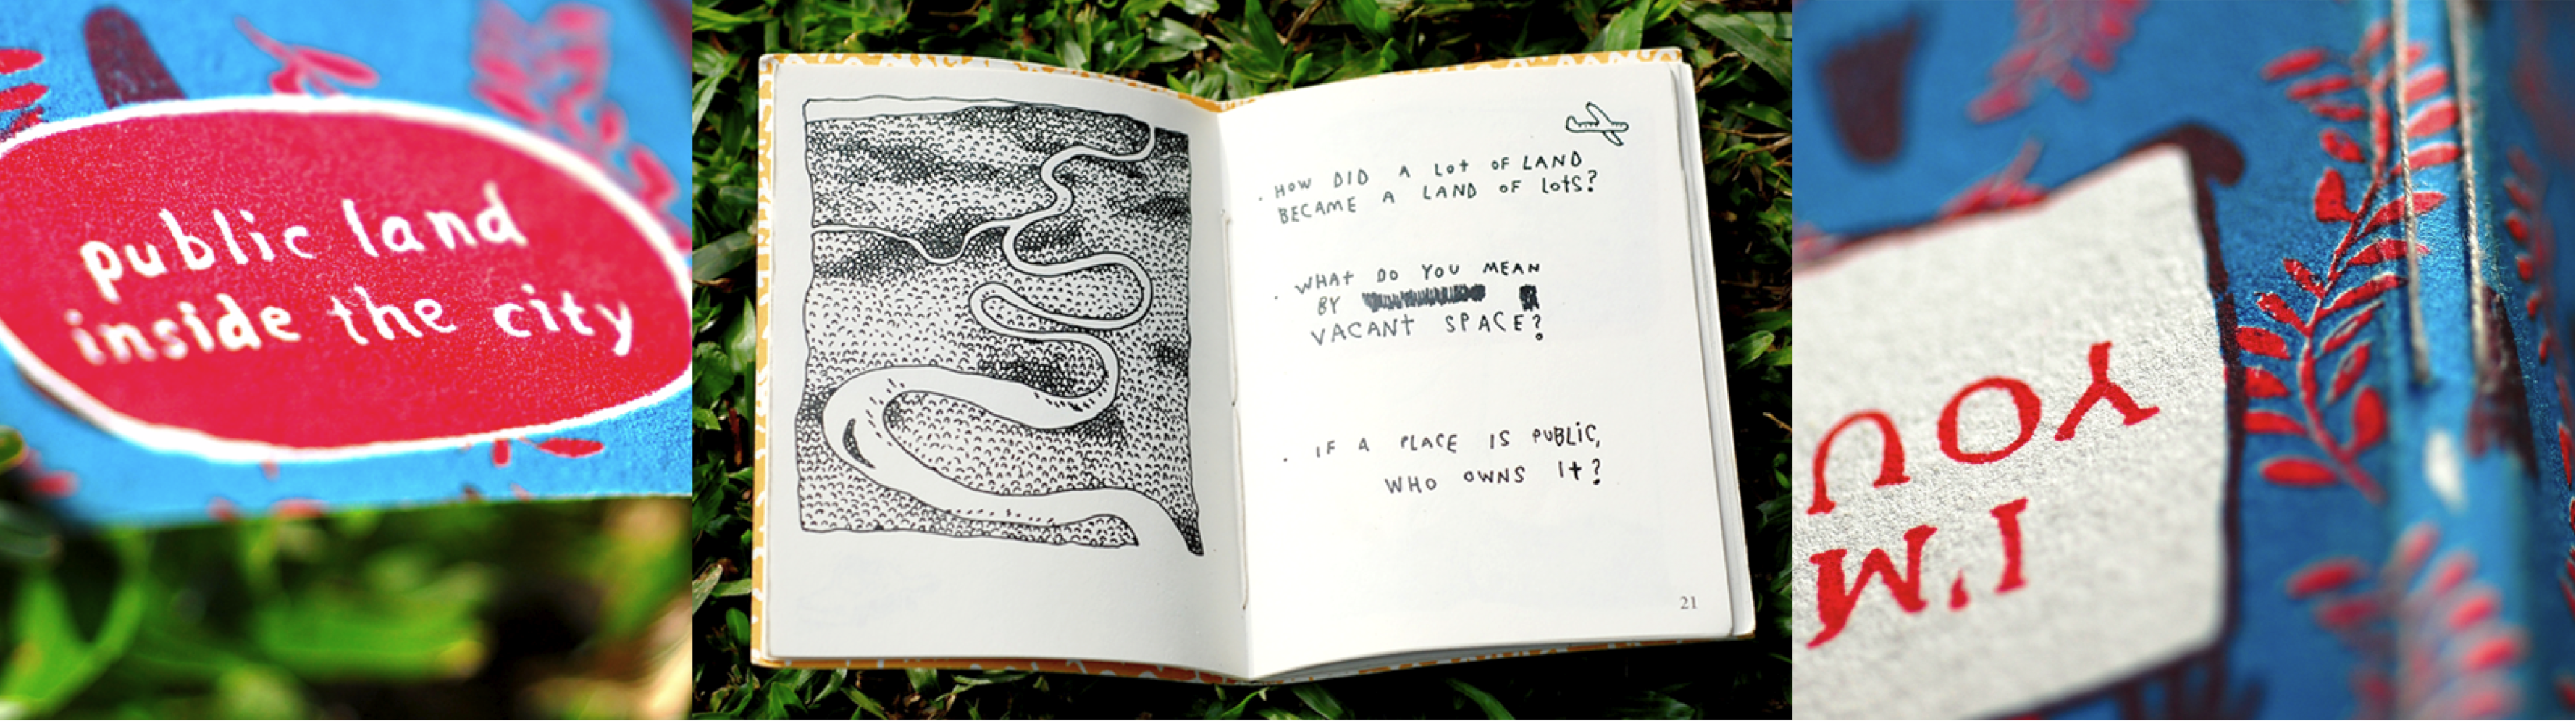 public land
inside the city
. HOW DID A LOT OF LAND
BECAME A LAND OF LOTS?
. WHAT DO YOU MEAN
BY
VACANT SPACE?
. IF A PLACE IS PUBLIC,
WHO OWNS IT?
21
I'M
YOU